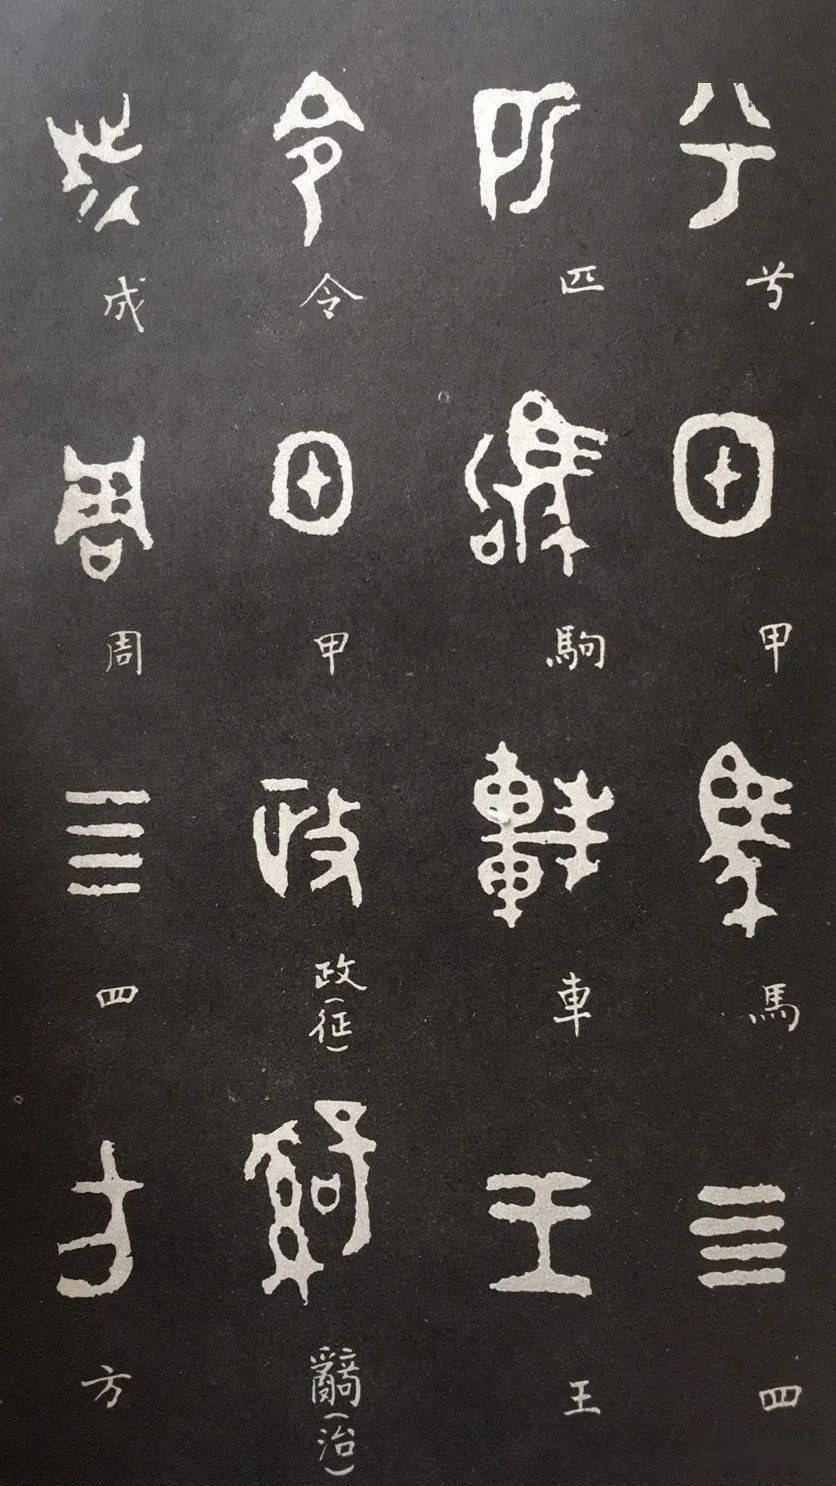 兮甲馬四
匹駒車王
令甲政(征)𤔲(治)
成周四方